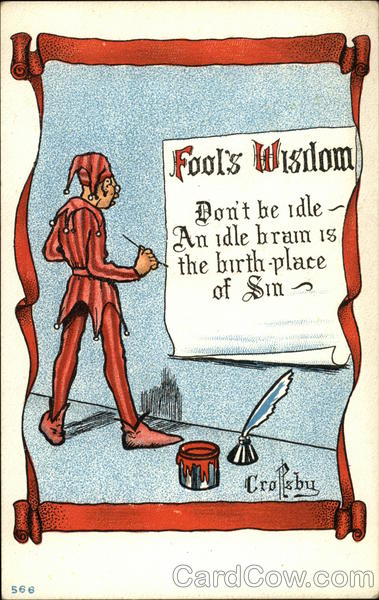 Fool's Wisdom
Don't be idle ~
An idle brain is
the birth-place
of Sin ~
Crosby
566
CardCow.com